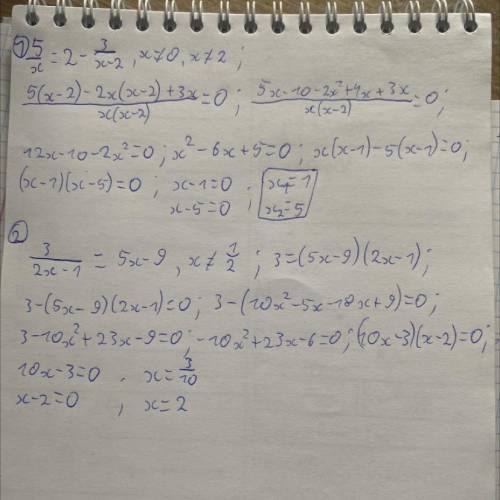 ① 5/x = 2 - 3/(x-2), x≠0, x≠2;
(5(x-2)-2x(x-2)+3x)/(x(x-2)) = 0; (5x-10-2x²+4x+3x)/(x(x-2)) = 0;
12x-10-2x²=0; x²-6x+5=0; x(x-1)-5(x-1)=0;
(x-1)(x-5)=0; x-1=0; x₁=1
x-5=0; x₂=5
② 3/(2x-1) = 5x-9, x≠1/2; 3=(5x-9)(2x-1);
3-(5x-9)(2x-1)=0; 3-(10x²-5x-18x+9)=0;
3-10x²+23x-9=0; -10x²+23x-6=0; (10x-3)(x-2)=0;
10x-3=0, x=3/10
x-2=0, x=2